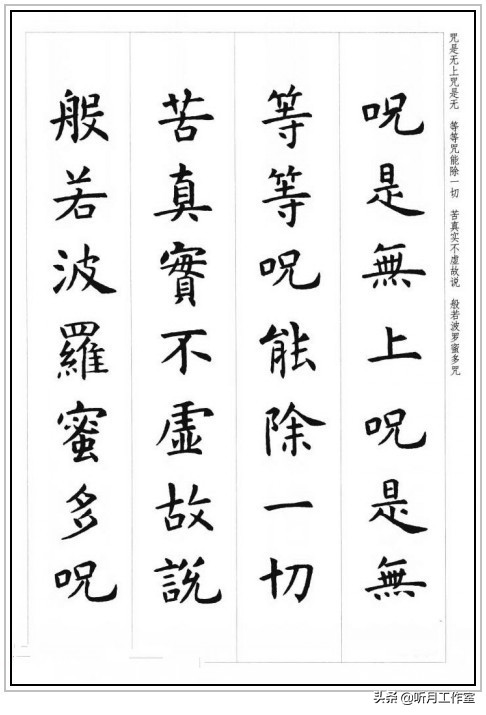 咒是无上咒是无 等等咒能除一切 苦真实不虚故说 般若波罗蜜多咒
呪是無上呪是無
等等呪能除一切
苦真實不虛故説
般若波羅蜜多呪
头条 @听月工作室